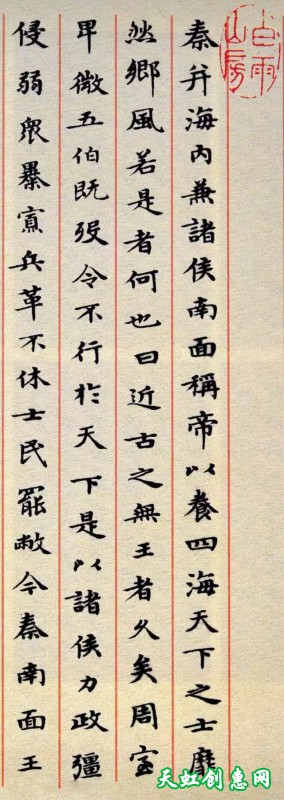 白雨
山房
秦并海内兼諸侯南面稱帝以養四海天下之士靡
然鄉風若是者何也曰近古之無王者久矣周室
卑微五伯既歿令不行於天下是以諸侯力政彊
侵弱眾暴寡兵革不休士民罷敝今秦南面王
天虹创惠网